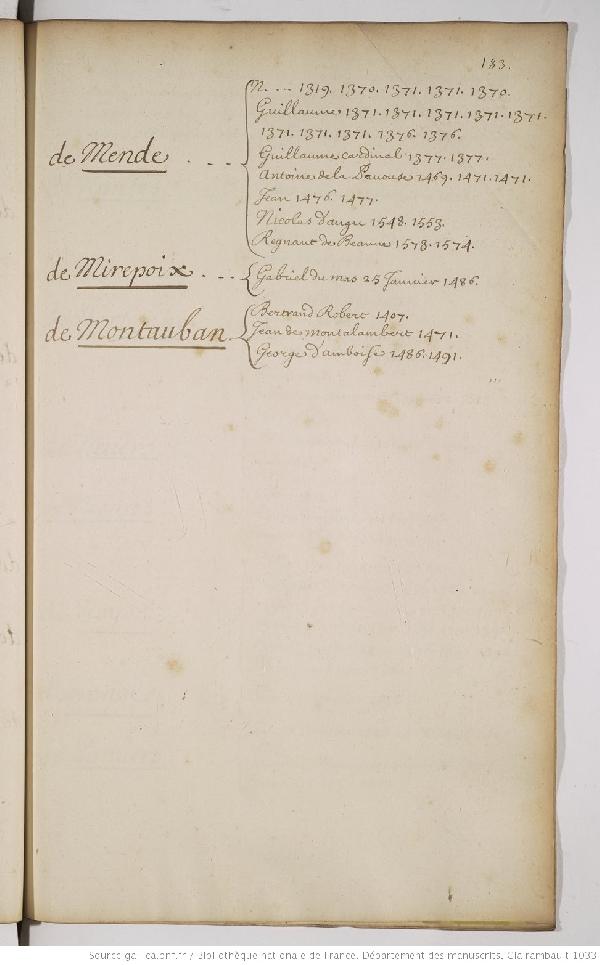 133.
de Mende . . . .
N. ... 1319. 1370. 1371. 1371. 1370.
Guillaume 1371. 1371. 1371. 1371. 1371.
1371. 1371. 1371. 1376. 1376.
Guillaume cardinal 1377. 1377.
Antoine de la Panouse 1469. 1471. 1471.
Jean 1476. 1477.
Nicolas d'angu 1548. 1553.
Regnaut de Beaune 1573. 1574.
de Mirepoix . . . .
Gabriel du mas 25 Janvier 1486.
de Montauban
Bertrand Robert 1407.
Jean de montalambert 1471.
George d'amboise 1486. 1491.
Source gallica.bnf.fr / Bibliothèque nationale de France. Département des manuscrits. Clairambault 1033